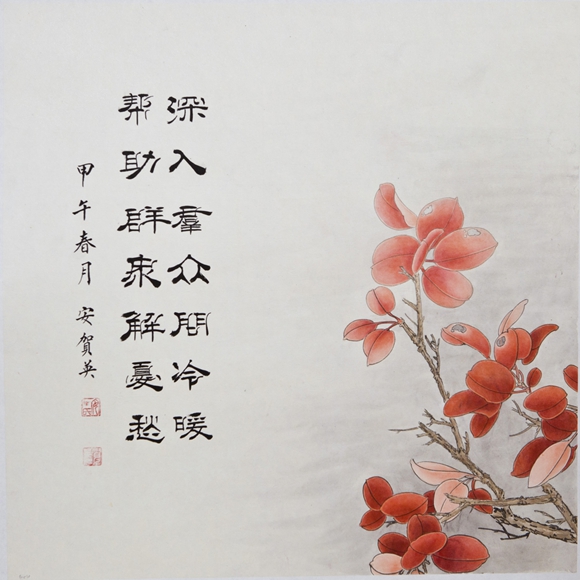 深入羣众问冷暖
帮助群来解憂愁
甲午春月 安贺英